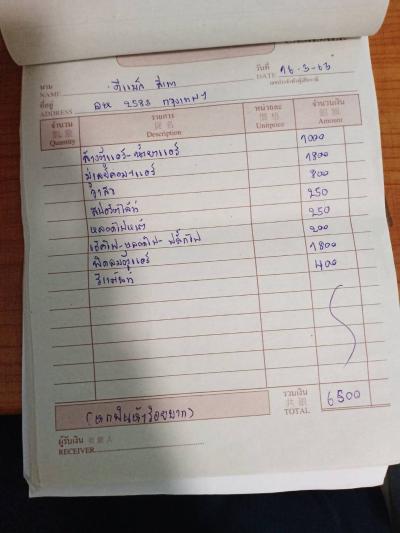 นาม NAME ดีแม็ก สีเทา
วันที่ DATE 16-3-63
เลขประจำตัวผู้เสียภาษี
ที่อยู่ ADDRESS 2583 กรุงเทพฯ
จำนวน 數量 Quantity รายการ Description หน่วยละ 價格 Unitprice จำนวนเงิน 銀額 Amount
ล้างตู้แอร์-น้ำยาแอร์ 1000
1800
วาล์ว 800
สปอร์ตไลท์ 250
หลอดไฟหน้า 250
เช็คไฟ-หลอดไฟ-ปลั๊กไฟ 200
พัดลมตู้แอร์ 1800
รีแพ้นท์ 400
รวมเงิน 共銀 TOTAL 6500
(หกพันห้าร้อยบาท)
ผู้รับเงิน 收銀人
RECEIVER